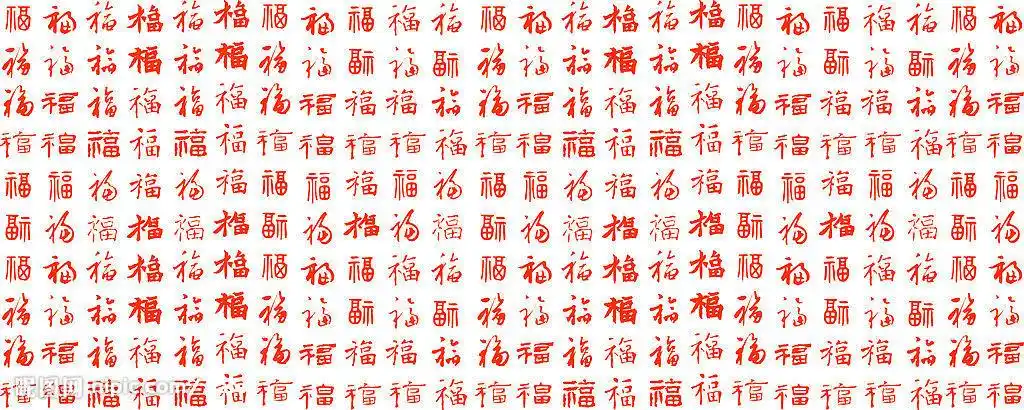 福福福福福福福福福福福福福福福福福福福福福福福福
福福福福福福福福福福福福福福福福福福福福福福福福
福福福福福福福福福福福福福福福福福福福福福福福福
福福福福福福福福福福福福福福福福福福福福福福福福
福福福福福福福福福福福福福福福福福福福福福福福福
福福福福福福福福福福福福福福福福福福福福福福福福
福福福福福福福福福福福福福福福福福福福福福福福福
福福福福福福福福福福福福福福福福福福福福福福福福
福福福福福福福福福福福福福福福福福福福福福福福福
福福福福福福福福福福福福福福福福福福福福福福福福
昵图网 nipic.com/